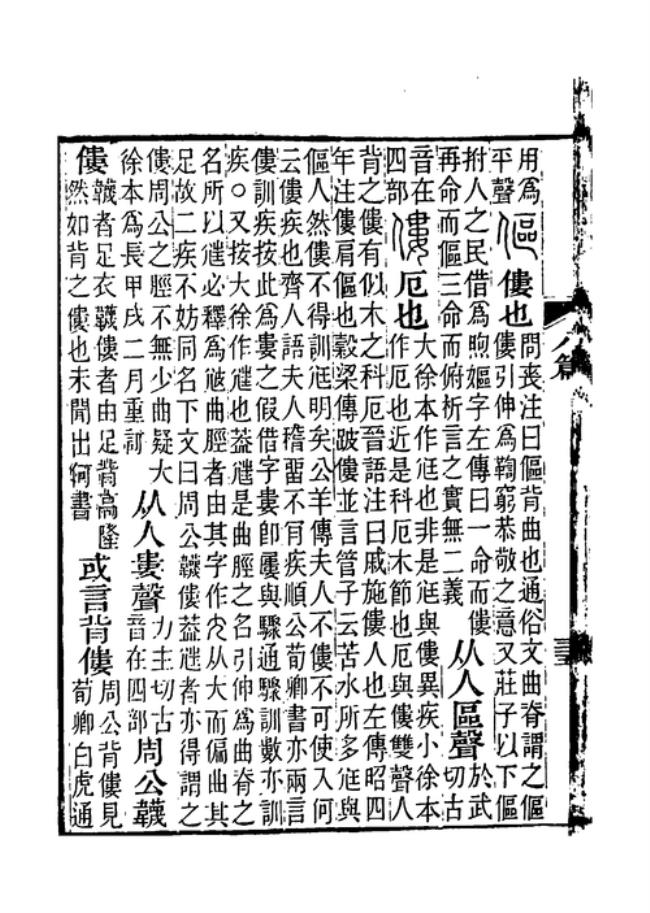 用爲
平聲
傴僂也
問喪注曰傴背曲也通俗文曲脊謂之傴
僂引伸爲鞠窮恭敬之意又莊子以下傴
拊人之民借爲煦嫗字左傳曰一命而僂
再命而傴三命而俯析言之實無二義
从人區聲
於武
切古
音在
四部
僂厄也
大徐本作尪也非是尪與僂異疾小徐本
作厄也近是科厄木節也厄與僂雙聲人
背之僂有似木之科厄晉語注曰戚施僂人也左傳昭四
年注僂肩傴也穀梁傳跛僂並言管子云苦水所多尪與
傴人然僂不得訓尪明矣公羊傳夫人不僂不可使入何
云僂疾也齊人語夫人稽畱不肎疾順公荀卿書亦兩言
僂訓疾按此爲婁之假借字婁卽屢與驟通驟訓數亦訓
疾○又按大徐作尩也葢尩是曲脛之名引伸爲曲脊之
名所以尩必釋爲㢮曲脛者由其字作尣从大而偏曲其
足故二疾不妨同名下文曰周公韈僂葢尩者亦得謂之
僂周公之脛不無少曲疑大
徐本爲長甲戌二月重訂
从人婁聲
力主切古
音在四部
周公韈
僂
韈者足衣韈僂者由足背高隆
然如背之僂也未聞出何書
或言背僂
周公背僂見
荀卿白虎通
八篇
三